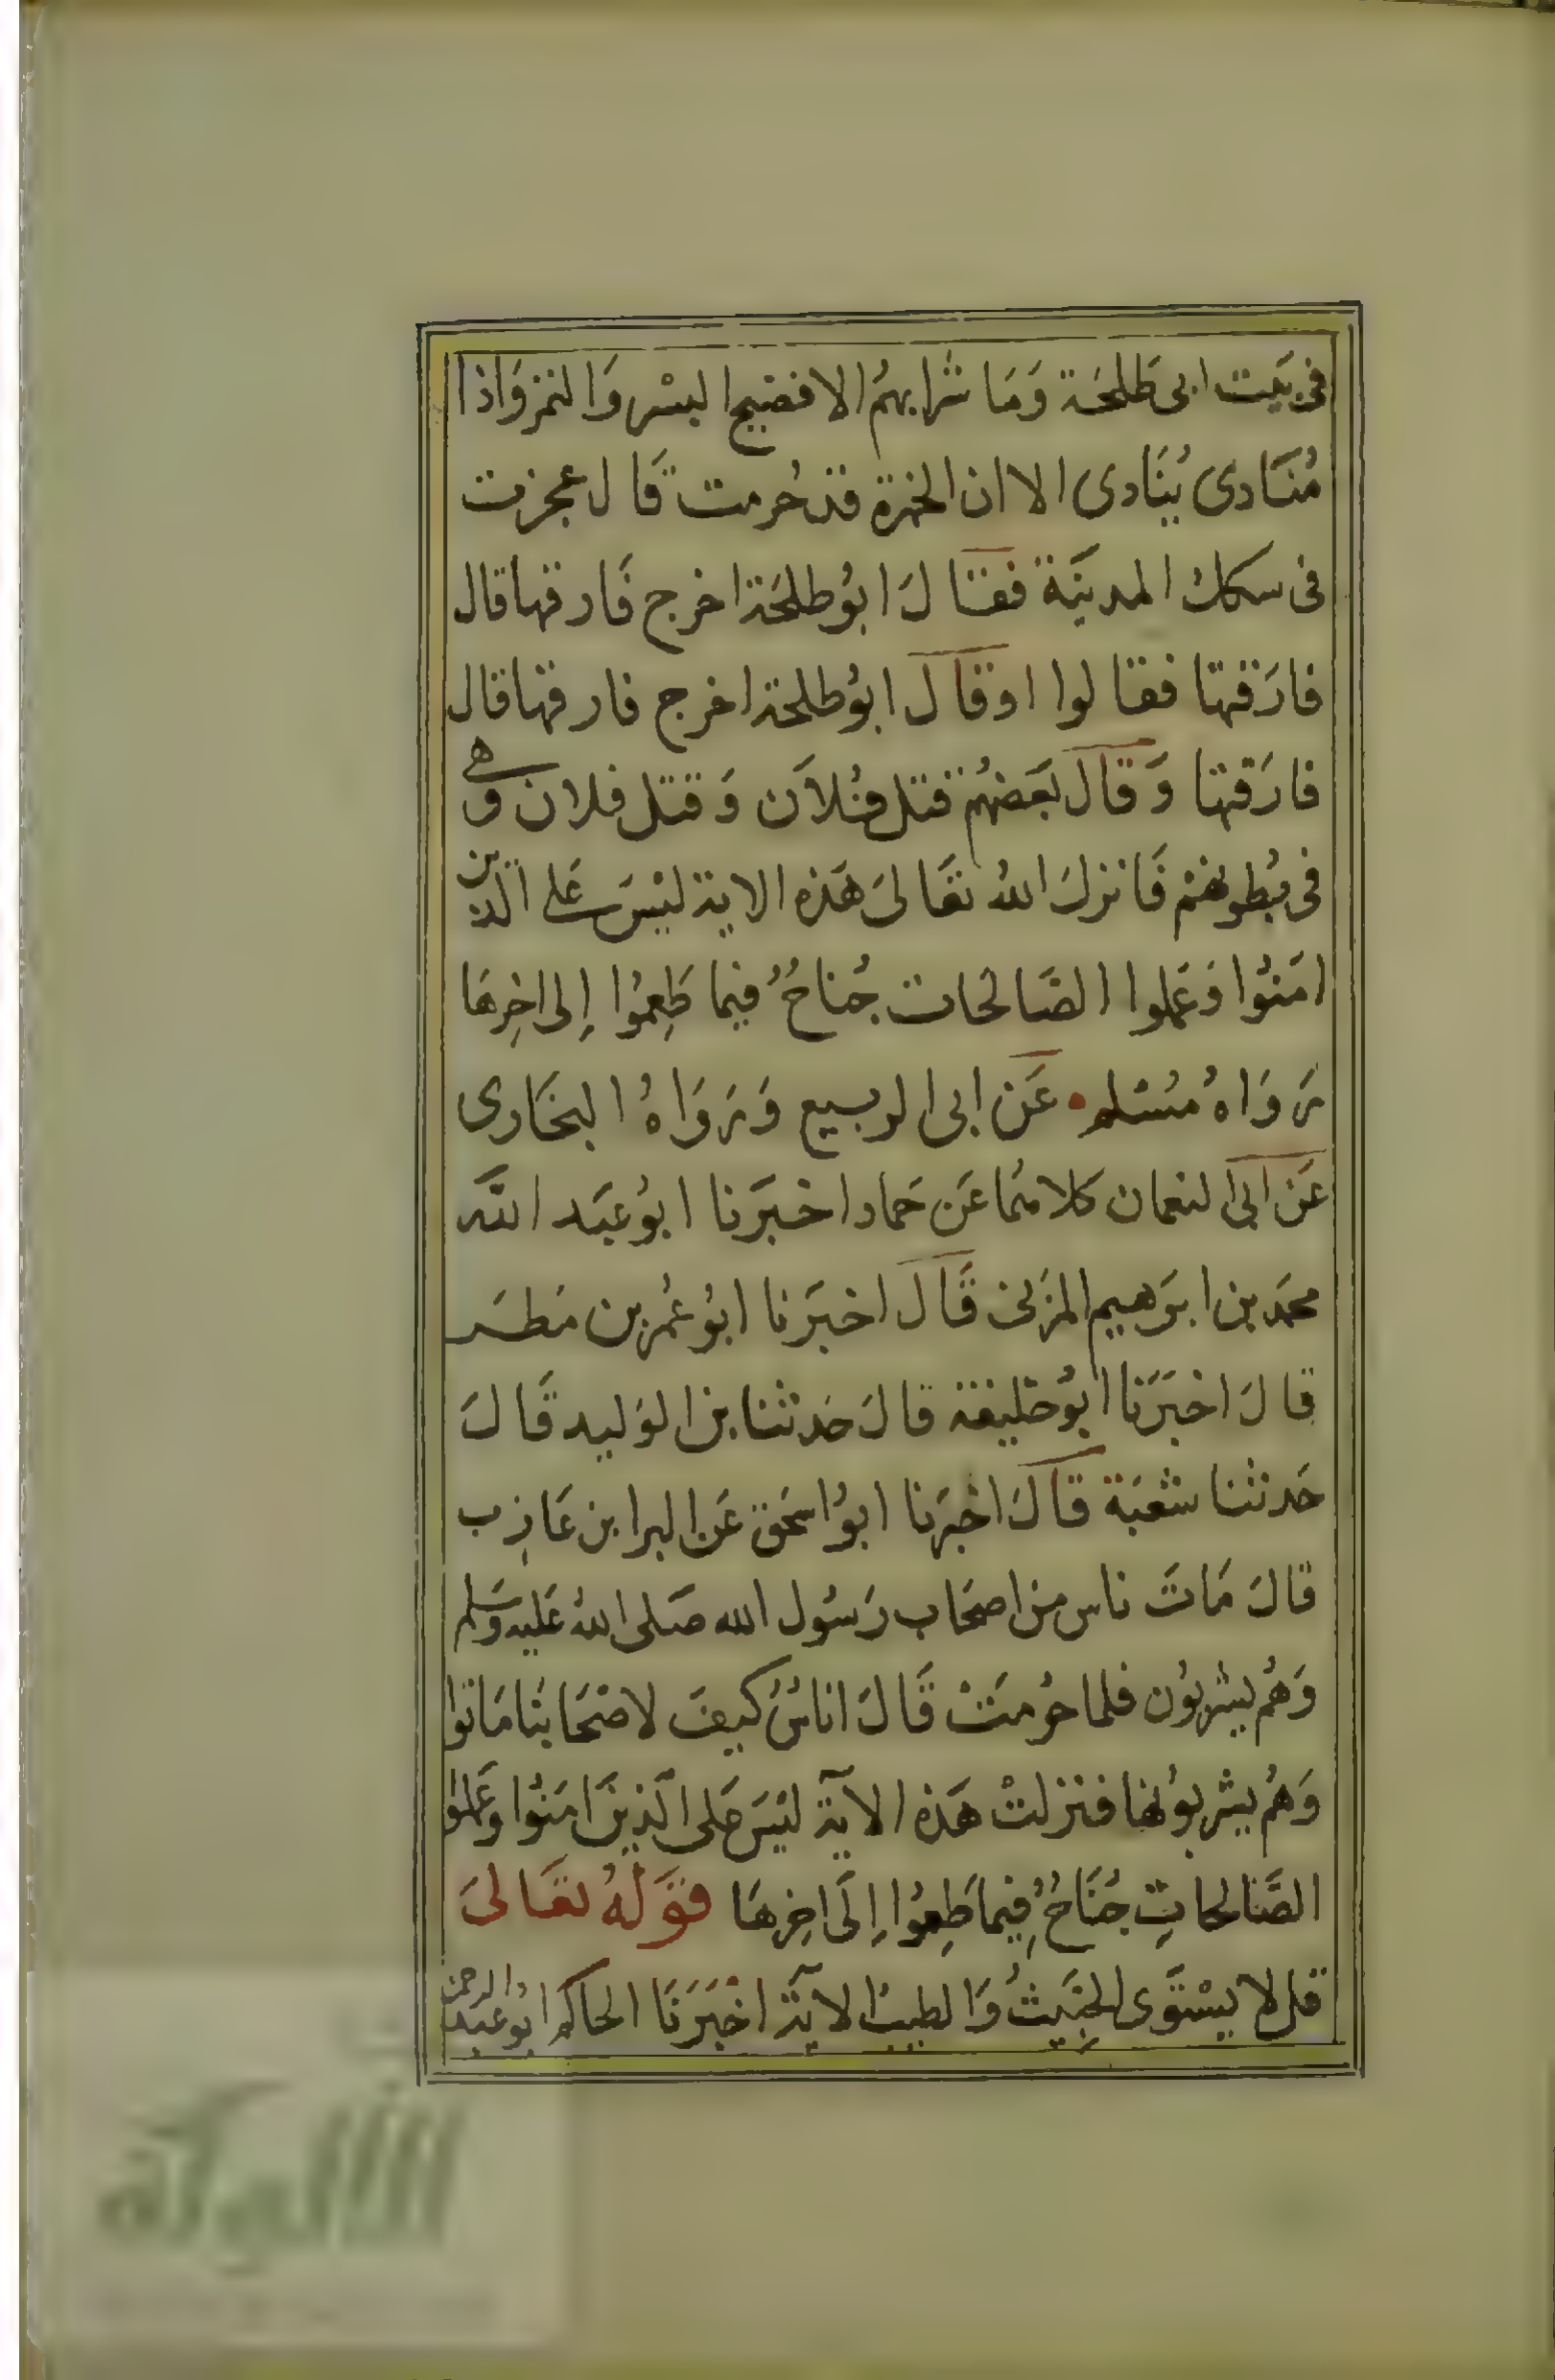 فى بَيت ابى طَلحَة وَمَا شرابهمُ الا فضيح البسْر وَالتمر وَاذا
مُنَادى يُنَادى الا ان الخمرة قد حُرمت قَال فجرت
فى سكك المدينَة فقال ابُو طلحَة اخرج فَارقها قال
فارَقتها فقالوا او قال ابُو طلحة اخرج فارقها قال
فارَقتها وَقال بَعضهُم قتل فُلاَن وَقتل فلان وهى
فى بُطونهم فَانزلَ اللهُ تعَالىَ هَذه الاية ليْسَ عَلى الذين
امَنُوا وَعَملوا الصَالحات جُناحٌ فيما طَعِمُوا إِلى اخِرهَا
رَوَاهُ مُسْلم عَن ابى الربيع وَرَوَاهُ البخَارى
عَن ابى النعمان كلاهُما عَن حَماد اخبَرَنا ابُو عبَد اللَّه
محمَد بن ابرَهيم المزَنى قَالَ اخبَرنا ابُو عُمر بن مَطَر
قالَ اخبَرَنا ابُو خليفة قالَ حَدثنا بن الوَليد قَالَ
حَدثنا شعبَة قالَ اخبَرنا ابُو اسحَق عَن البرا بن عَازِب
قالَ مَاتَ ناس من اصحَاب رَسُول الله صَلى اللهُ عَليه وَسَلم
وَهُم يشربُون فلما حُرمَتْ قَالَ اناسٌ كيفَ لاصْحَابنَا مَاتوا
وَهُم يشربوُنها فنزلتْ هَذه الآية ليْسَ عَلى الَّذينَ امَنُوا وعَملوا
الصَّالحاتِ جُنَاحٌ فِيما طَعِمُوا إِلَى اخِرهَا قَوْلهُ تعَالىَ
قل لا يسْتوَى الخبَيثُ وَالطيبُ الآيَة اخْبَرَنَا الحاكم ابُو عبَد الرحمن